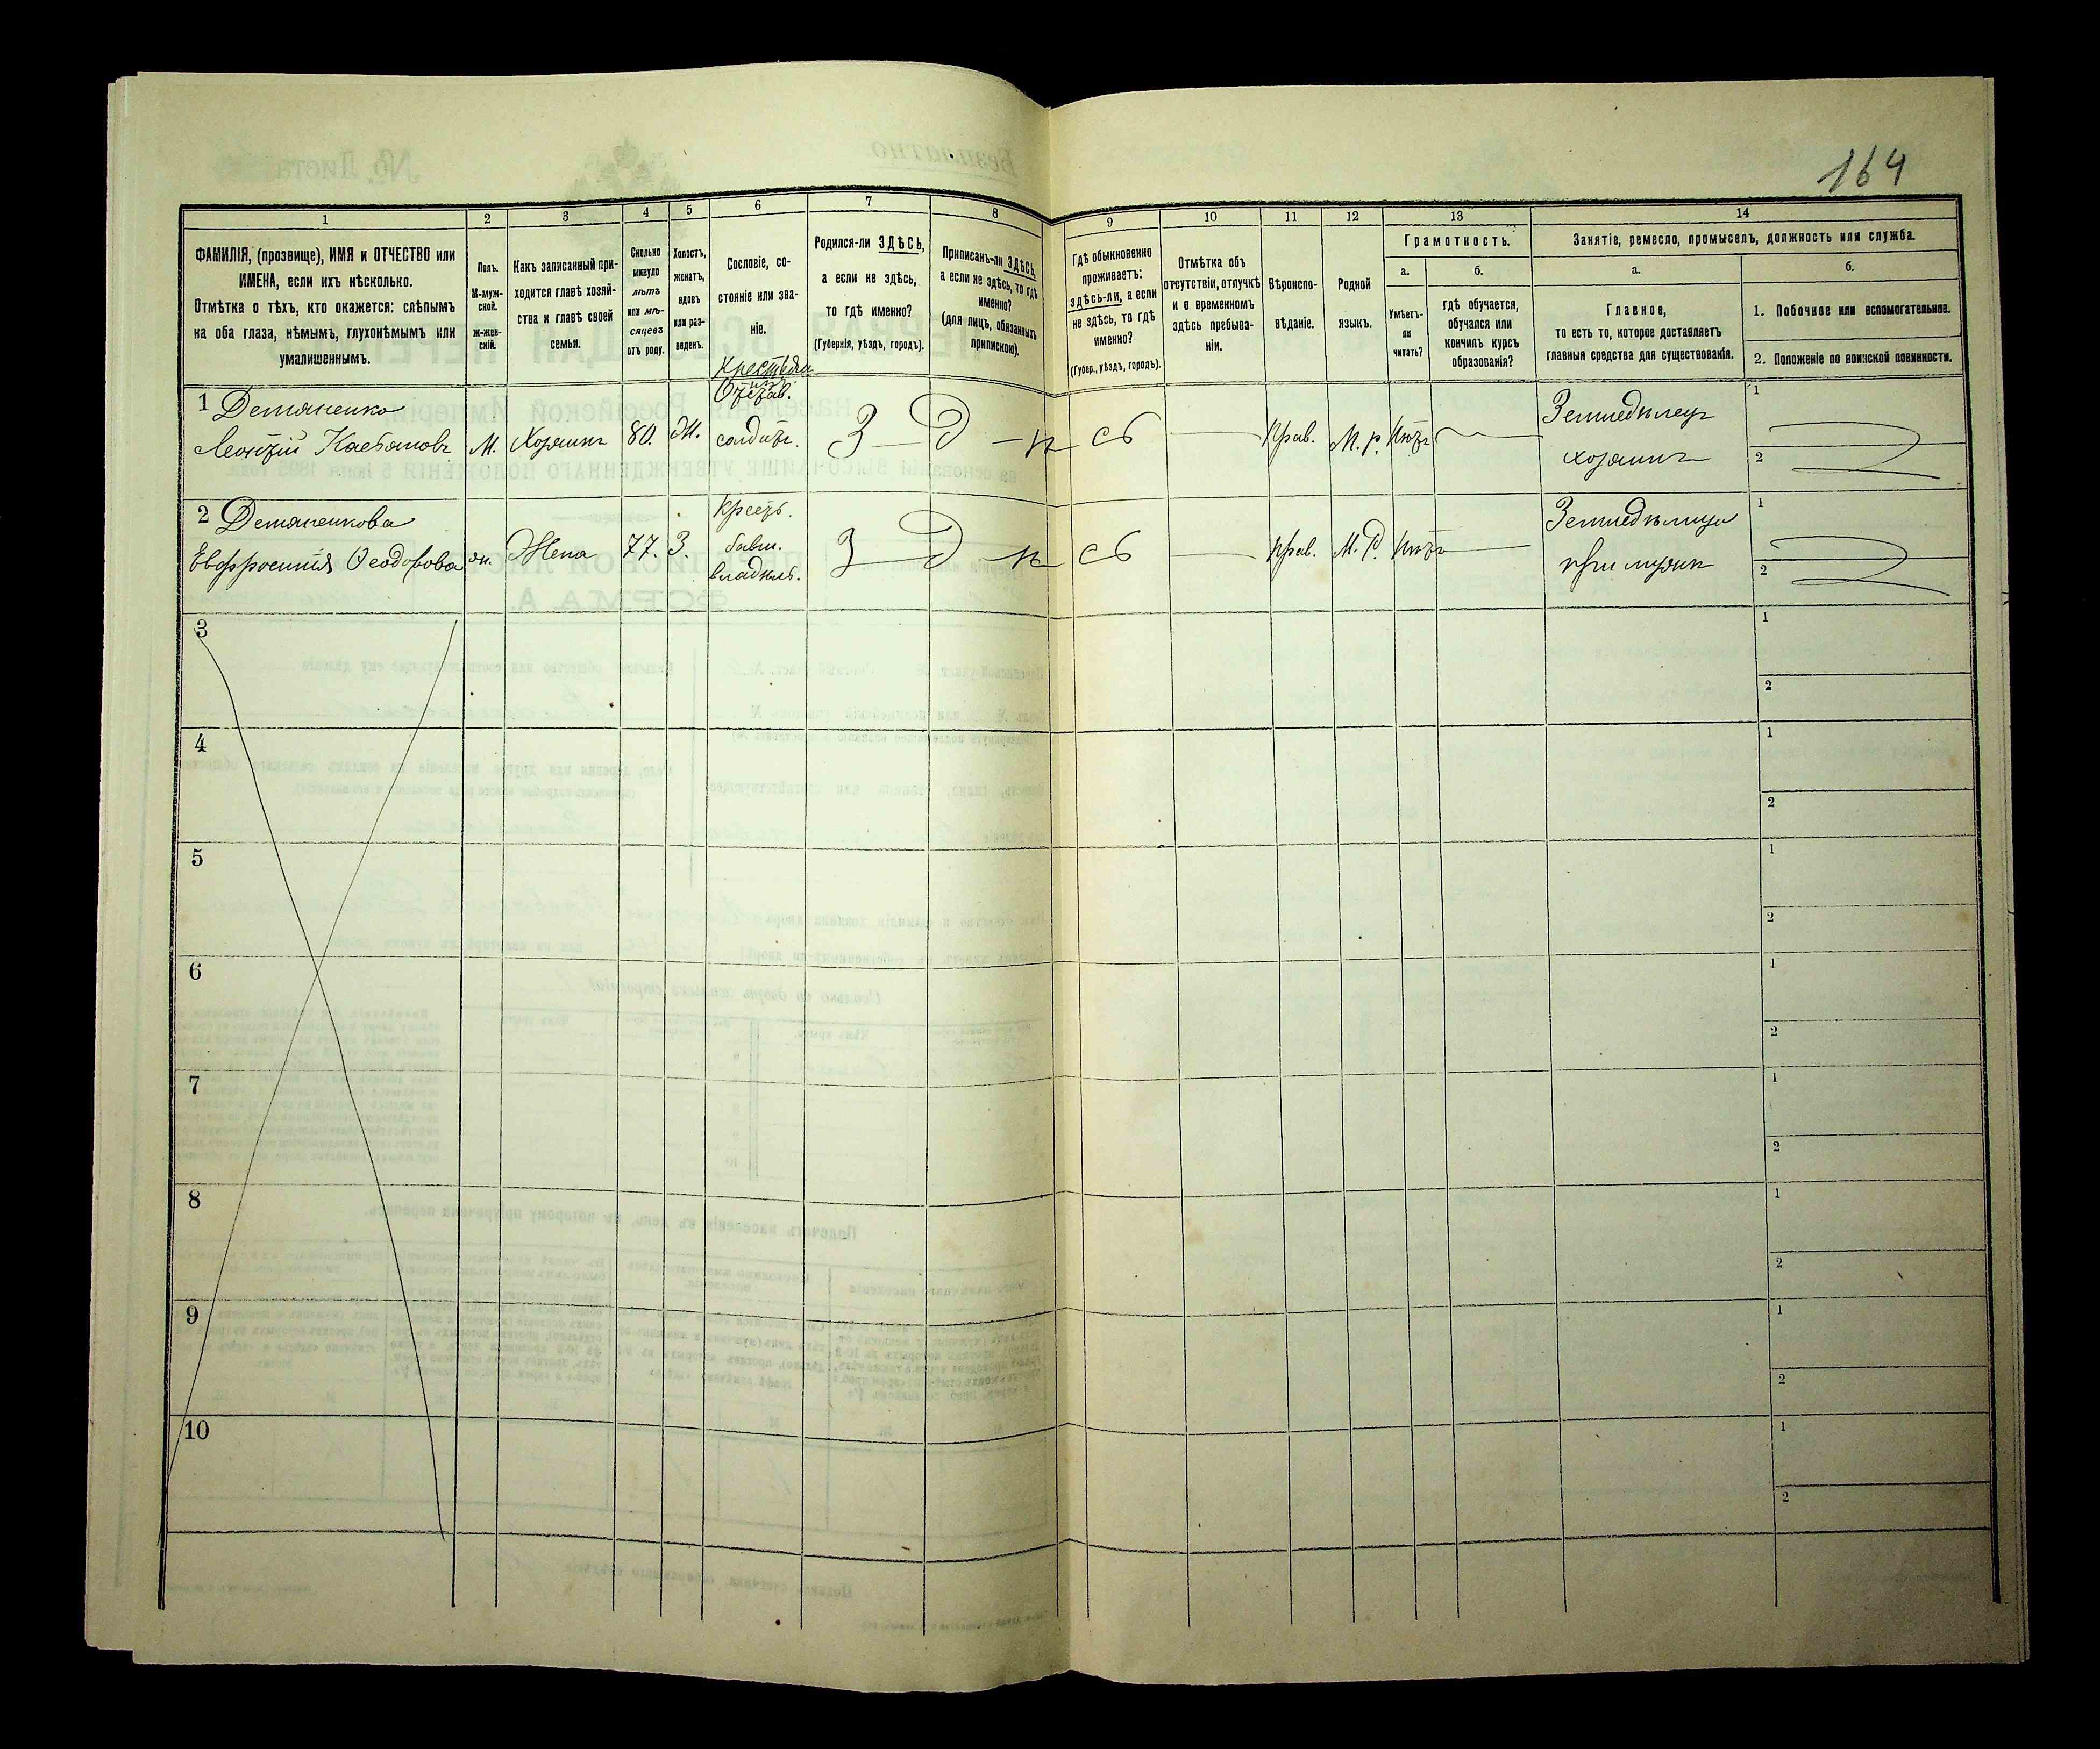 164
1
2
3
4
5
6
7
8
9
10
11
12
13
14
ФАМИЛІЯ, (прозвище), ИМЯ и ОТЧЕСТВО или
ИМЕНА, если ихъ нѣсколько.
Отмѣтка о тѣхъ, кто окажется: слѣпымъ
на оба глаза, нѣмымъ, глухонѣмымъ или
умалишеннымъ.
Полъ.
М-муж-
ской.
Ж-жен-
скій.
Какъ записанный при-
ходится главѣ хозяй-
ства и главѣ своей
семьи.
Сколько
минуло
лѣтъ
или мѣ-
сяцевъ
отъ роду.
Холостъ,
женатъ,
вдовъ
или раз-
веденъ.
Сословіе, со-
стояніе или зва-
ніе.
Родился-ли ЗДѢСЬ,
а если не здѣсь,
то гдѣ именно?
(Губернія, уѣздъ, городъ).
Приписанъ-ли ЗДѢСЬ,
а если не здѣсь, то гдѣ
именно?
(для лицъ, обязанныхъ
припискою).
Гдѣ обыкновенно
проживаетъ:
здѣсь-ли, а если
не здѣсь, то гдѣ
именно?
(Губер., уѣздъ, городъ).
Отмѣтка объ
отсутствіи, отлучкѣ
и о временномъ
здѣсь пребыва-
ніи.
Вѣроиспо-
вѣданіе.
Родной
языкъ.
Грамотность.
а.
Умѣетъ-
ли
читать?
б.
Гдѣ обучается,
обучался или
кончилъ курсъ
образованія?
Занятіе, ремесло, промыселъ, должность или служба.
а.
Главное,
то есть то, которое доставляетъ
главныя средства для существованія.
б.
1. Побочное или вспомогательное.
2. Положеніе по воинской повинности.
1 Демяненко
Леонтій Касьяновъ
М.
Хозяинъ
80.
Ж.
Отстав.
солдатъ.
З — Д — н — сь
Прав.
М. р.
Нѣтъ
Земледѣлецъ
хозяинъ
1
2
2 Демяненкова
Евфросинія Ѳеодорова
ж.
Жена
77.
З.
Крест.
бывш.
владѣль.
З — Д — н — сь
Прав.
М. Р.
Нѣтъ
Земледѣлица
при мужѣ
1
2
3
1
2
4
1
2
5
1
2
6
1
2
7
1
2
8
1
2
9
1
2
10
1
2